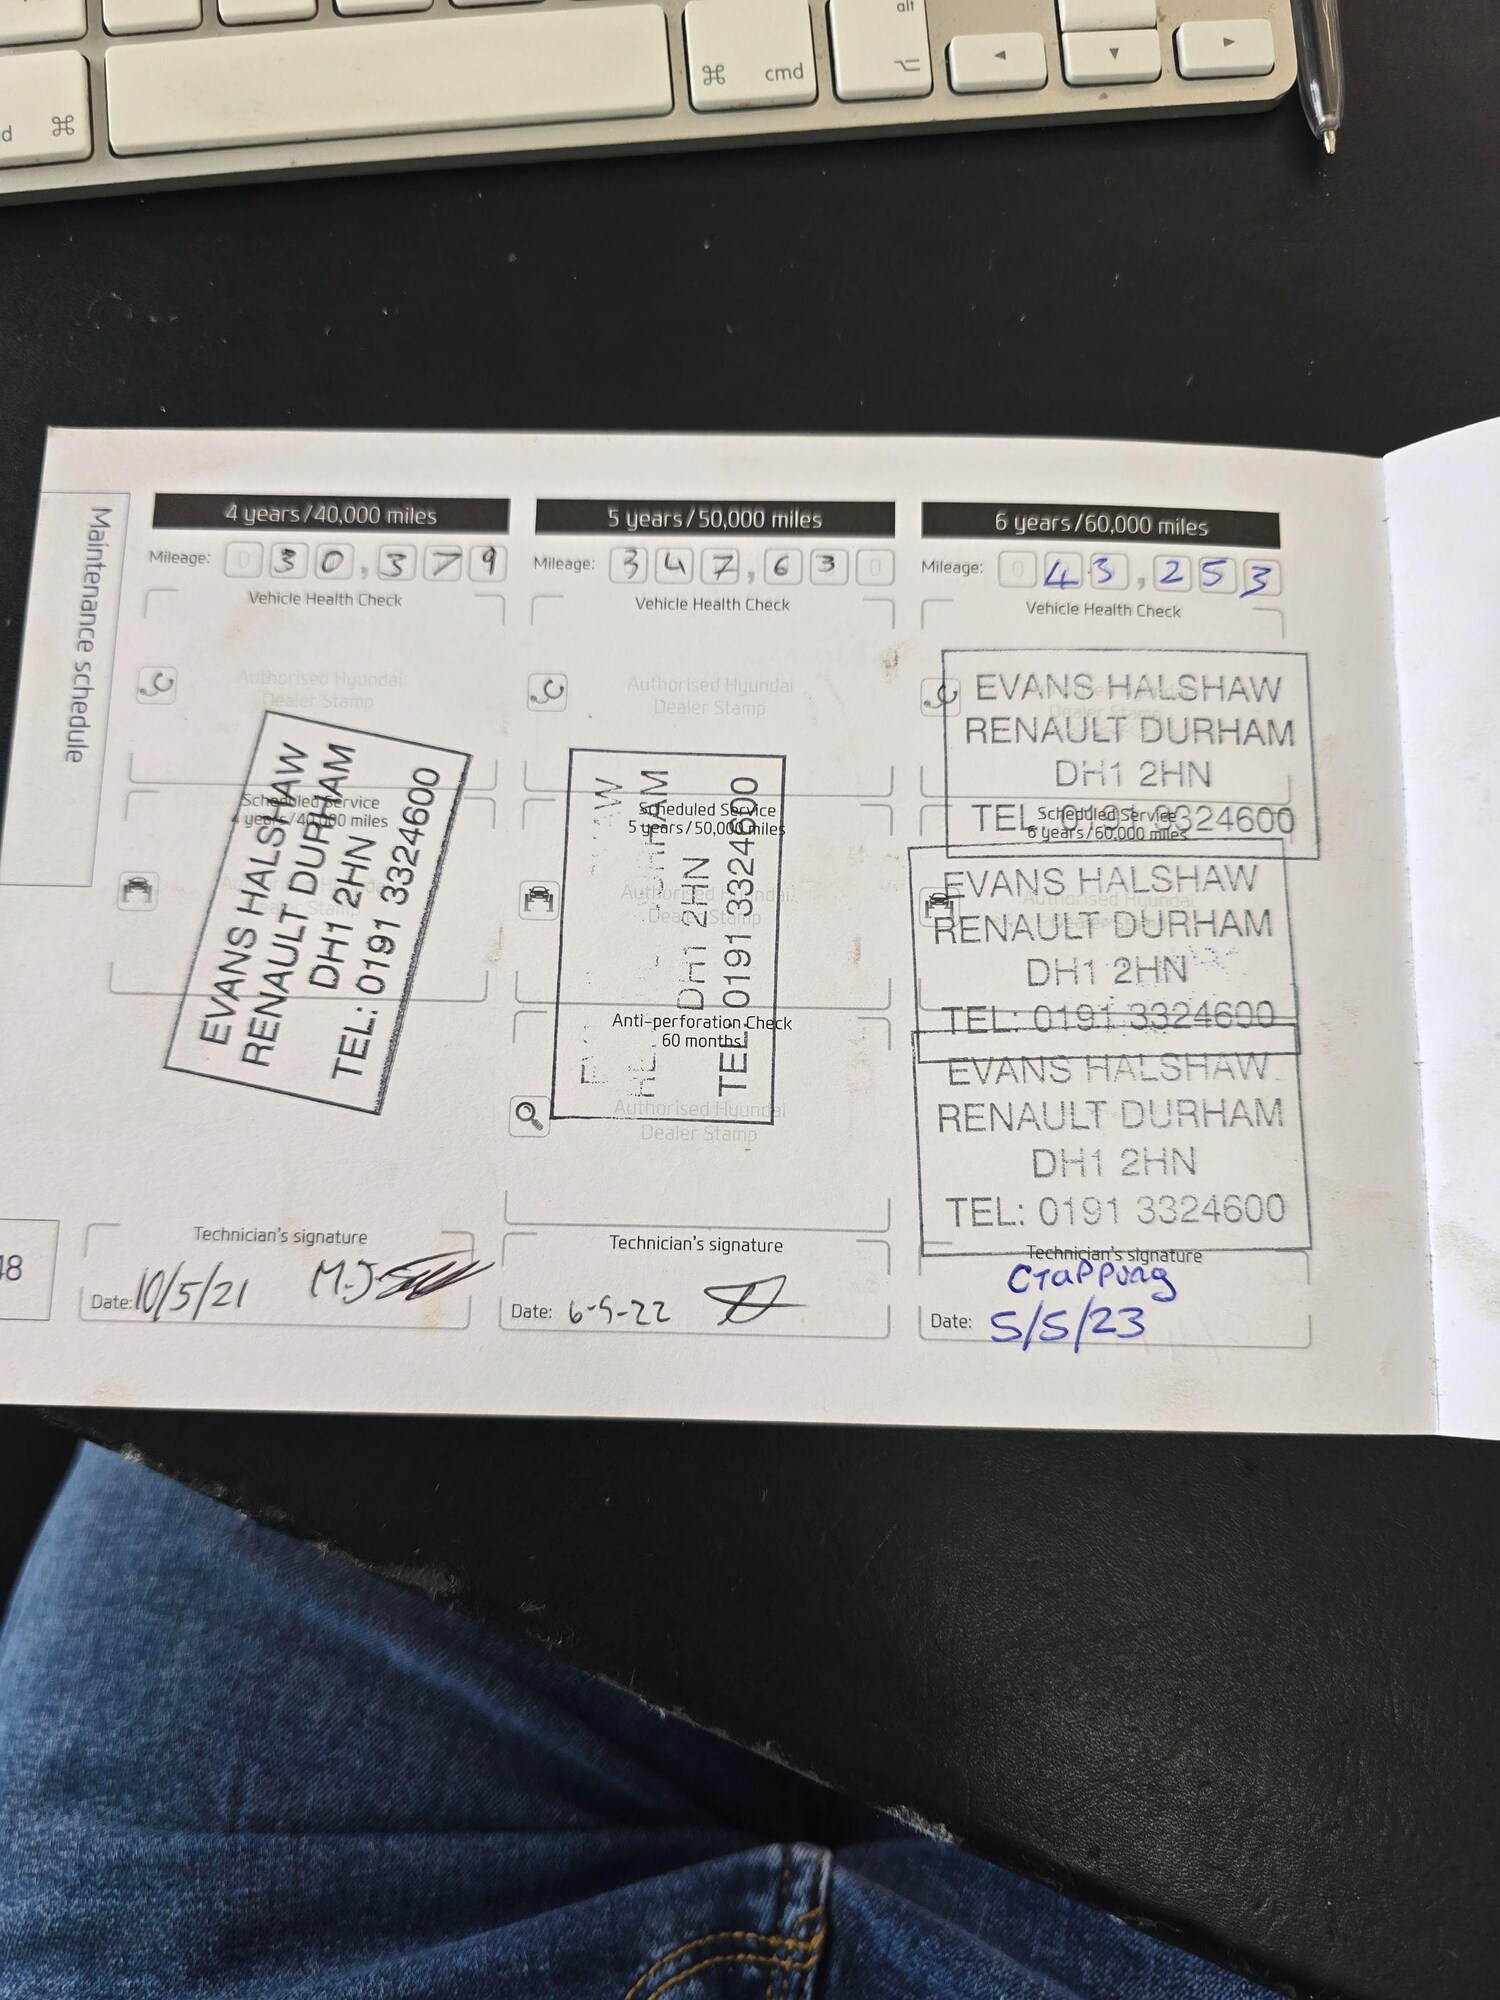 alt
⌘ cmd ⌥ ◄ ▼ ►
d ⌘
Maintenance schedule
48
4 years/40,000 miles
Mileage: 0 3 0 , 3 7 9
Vehicle Health Check
Authorised Hyundai
Dealer Stamp
Scheduled Service
4 years/40,000 miles
EVANS HALSHAW
RENAULT DURHAM
DH1 2HN
TEL: 0191 3324600
Technician's signature
Date: 10/5/21
5 years/50,000 miles
Mileage: 3 4 7 , 6 3 0
Vehicle Health Check
Authorised Hyundai
Dealer Stamp
Scheduled Service
5 years/50,000 miles
Authorised Hyundai
Dealer Stamp
DH1 2HN
TEL: 0191 3324600
Anti-perforation Check
60 months
Authorised Hyundai
Dealer Stamp
Technician's signature
Date: 6-5-22
6 years/60,000 miles
Mileage: 0 4 3 , 2 5 3
Vehicle Health Check
EVANS HALSHAW
RENAULT DURHAM
DH1 2HN
TEL: 0191 3324600
Scheduled Service
6 years/60,000 miles
EVANS HALSHAW
RENAULT DURHAM
DH1 2HN
TEL: 0191 3324600
EVANS HALSHAW
RENAULT DURHAM
DH1 2HN
TEL: 0191 3324600
Technician's signature
Date: 5/5/23